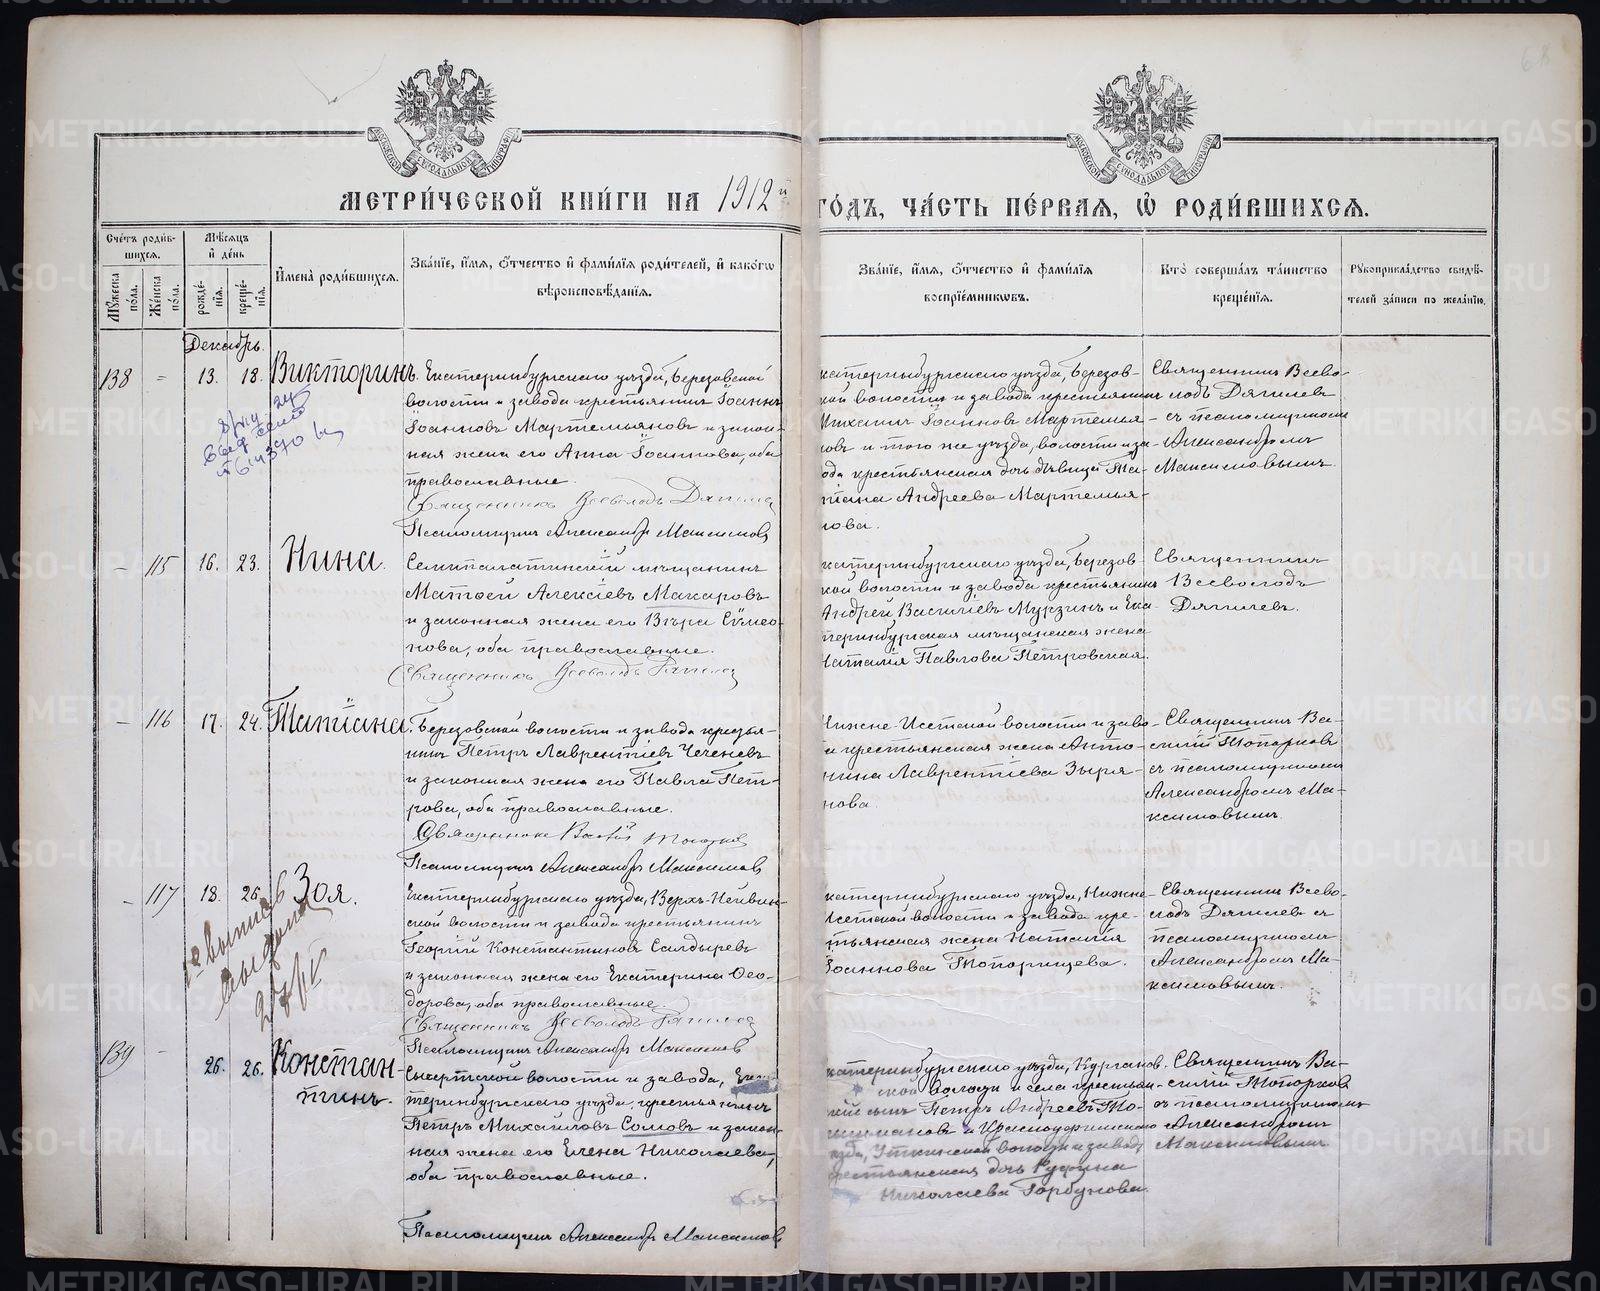 МЕТРИ́ЧЕСКОЙ КНИ́ГИ НА 1912 й
ГО́ДЪ, ЧА́СТЬ ПЕ́РВАЯ, Ѡ РОДИ́ВШИХСЯ.
Сче́тъ роди́в-
шихся.
Му́жеска по́ла.
Же́нска по́ла.
Мѣ́сяцъ
и де́нь
рожде́-
нїя.
креще́-
нїя.
Имена̀ роди́вшихся.
Зва́нїе, и́мя, о́тчество и фами́лїя роди́телей, и како́гѡ
вѣроисповѣ́данїя.
Зва́нїе, и́мя, о́тчество и фами́лїя
воспрїе́мникѡвъ.
Кто̀ соверша́лъ та́инство
креще́нїя.
Рꙋкоприкла́дство свидѣ́-
телей за́писи по жела́нїю.
Декабрь.
138 13. 18. Викторинъ.
Екатеринбургскаго уѣзда, Березовской
волости и завода крестьянинъ Іоаннъ
Іоанновъ Мартемьяновъ и закон-
ная жена его Анна Іоаннова, оба
православные.
Священникъ Всеволодъ Дягилев
Псаломщикъ Александръ Максимов
катеринбургскаго уѣзда, Березов-
кой волости и завода крестьянинъ
Михаилъ Іоанновъ Мартемья-
овъ и того же уѣзда, волости и за-
ода крестьянская дочь дѣвица Та-
тіана Андреева Мартемья-
нова.
Священникъ Всево-
лодъ Дягилевъ
съ псаломщикомъ
Александромъ
Максимовымъ.
115 16. 23. Нина.
Семипалатинскій мѣщанинъ
Матѳей Алексіевъ Макаровъ
и законная жена его Вѣра Сѵмео-
нова, оба православные.
Священникъ Всеволодъ Дягилев
катеринбургскаго уѣзда, Березов-
кой волости и завода крестьянинъ
Андрей Василіевъ Мурзинъ и Ека-
теринбургская мѣщанская жена
Наталія Павлова Петровская.
Священникъ
Всеволодъ
Дягилевъ.
116 17. 24. Татіана.
Березовской волости и завода крестья-
нинъ Петръ Лаврентіевъ Чеченевъ
и законная жена его Павла Пет-
рова, оба православные.
Священникъ Василій Топорков
Псаломщикъ Александръ Максимов
Нижне-Исетской волости и заво-
а крестьянская жена Анто-
нина Лаврентіева Зыря-
нова.
Священникъ Ва-
силій Топорковъ
съ псаломщикомъ
Александромъ Ма-
ксимовымъ.
117 18. 26. Зоя.
Екатеринбургскаго уѣзда, Верхъ-Нейвин-
ской волости и завода крестьянинъ
Георгій Константиновъ Салдыревъ
и законная жена его Екатерина Ѳео-
дорова, оба православные.
Священникъ Всеволодъ Дягилев
Псаломщикъ Александръ Максимов
катеринбургскаго уѣзда, Нижне-
Исетской волости и завода кре-
стьянская жена Наталія
Іоаннова Топорищева.
Священникъ Всево-
лодъ Дягилевъ съ
псаломщикомъ
Александромъ Ма-
ксимовымъ.
139 26. 26. Констан-
тинъ.
Сысертской волости и завода, Ека-
теринбургскаго уѣзда, крестьянинъ
Петръ Михаиловъ Сомовъ и закон-
ная жена его Елена Николаева,
оба православные.
Псаломщикъ Александръ Максимов
катеринбургскаго уѣзда, Курганов-
ской волости и села крестьян-
скій сынъ Петръ Андреевъ То-
и Красноуфимскаго
уѣзда, Уткинской волости и завода,
крестьянская дочь Руфина
Николаева Горбунова.
Священникъ Ва-
силій Топорковъ
съ псаломщикомъ
Александромъ
Максимовымъ
METRIKI.GASO-URAL.RU